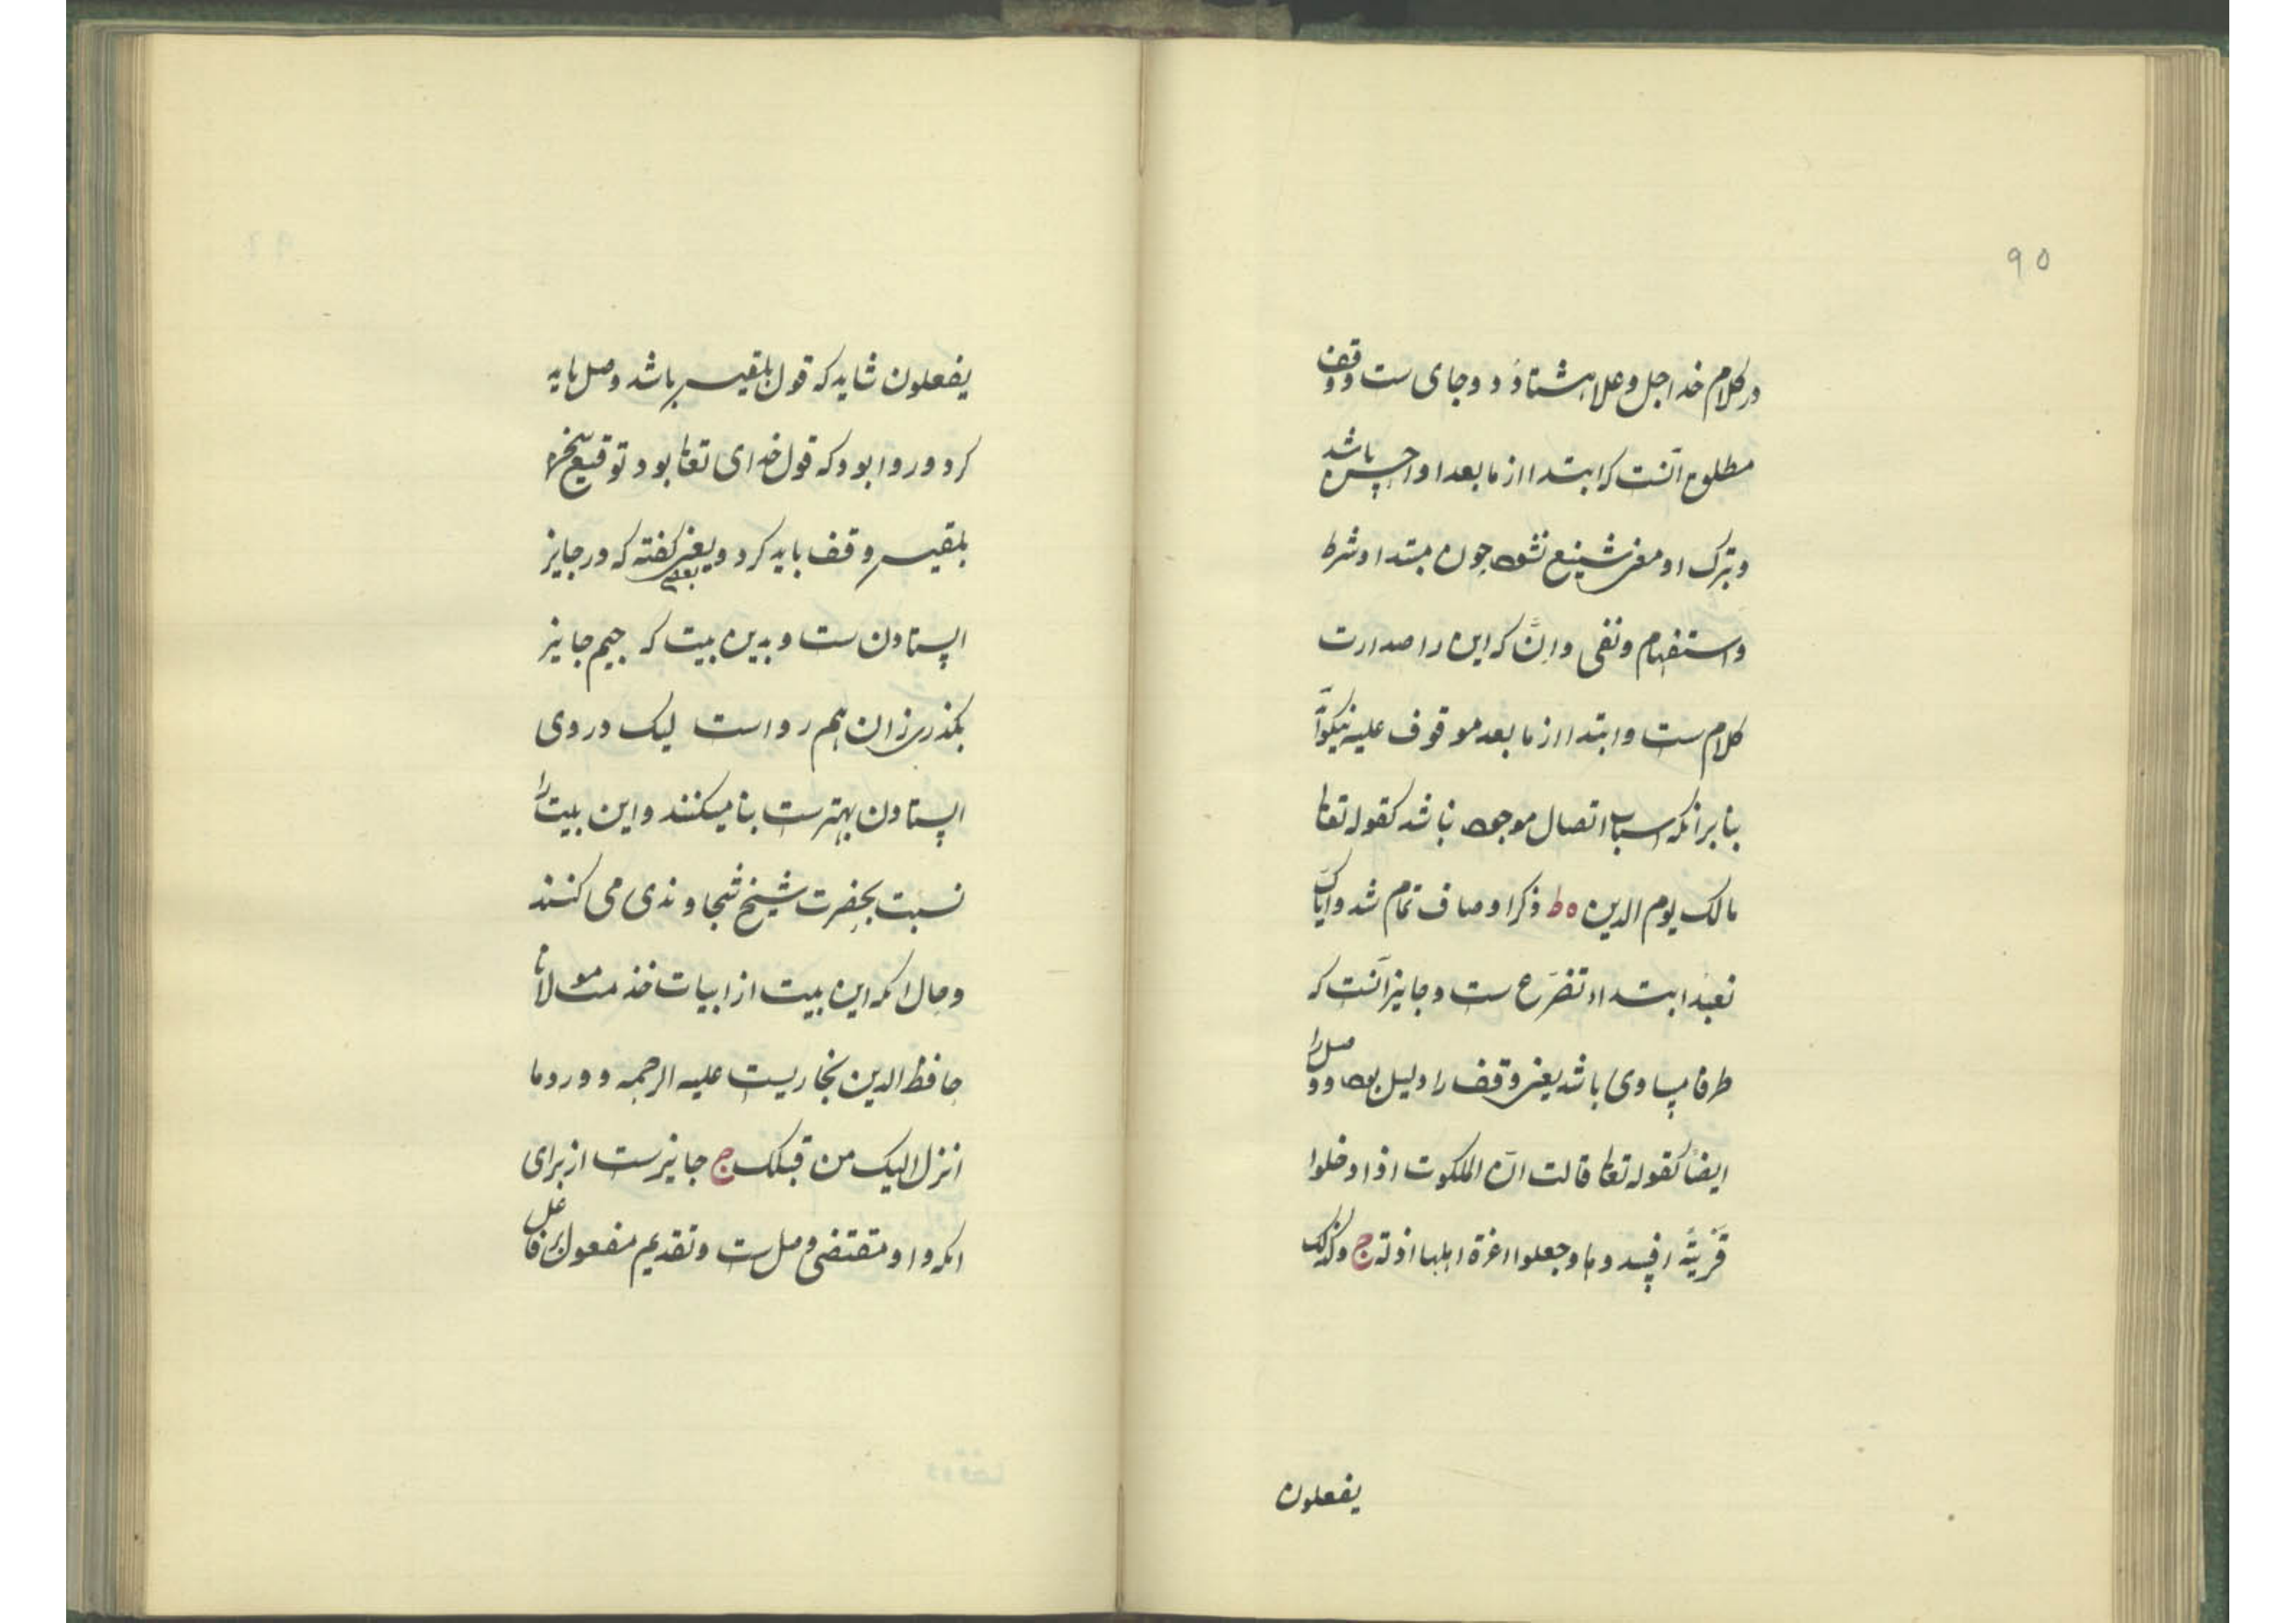 ۹۵
در کلام خدا جل و علا هشتاد و دو جای ست و وقف
مطلق آنست که ابتدا از ما بعد او احسن باشد
و بترک او معنی شنیع نشود چون مبتدا و شرط
و استفهام و نفی و انّ که این را صدارت
کلام ست و ابتدا از ما بعد موقوف علیه نیکو
بنا بر آنکه اسباب اتصال موجود نباشد کقوله تعالی
مالک یوم الدین ه ط ذکر اوصاف تمام شد و ایاک
نعبد ابتداء تضرّع ست و جایز آنست که
طرفا مساوی باشد یعنی وقف را دلیل بود و وصل را
ایضا کقوله تعالی قالت انّ الملکوت اذا دخلوا
قریةً افسدوها و جعلوا اعزة اهلها اذلة ج و کذلک
یفعلون
یفعلون شاید که قول بلقیس باشد وصل باید
کرد و روا بود که قول خدای تعالی بود توقیع
بلقیس وقف باید کرد و بعضی گفته که در جایز
ایستادن ست و بدین بیت که جیم جایز
بگذری زان هم رواست لیک در وی
ایستادن بهترست بنا میکنند و این بیت را
نسبت بحضرت شیخ سجاوندی می کنند
و حال انکه این بیت از ابیات خدمت مولانا
حافظ الدین بخاریست علیه الرحمه و در و ما
انزل الیک من قبلک ج جایزست از برای
انکه واو مقتضی وصل ست و تقدیم مفعول بر فاعل